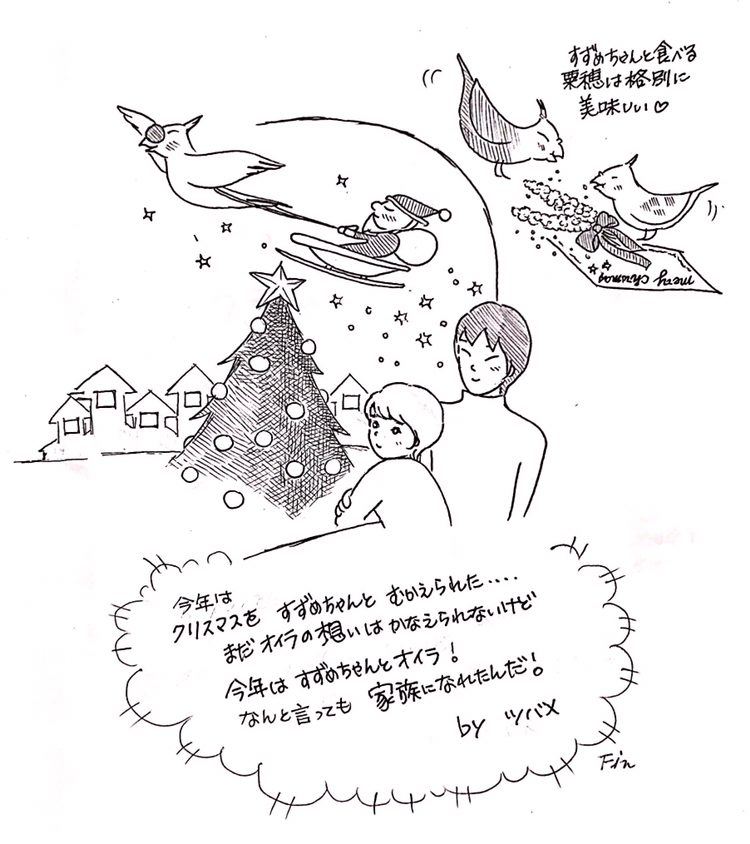 すずめちゃんと食べる
粟穂は格別に
美味しい♡
merry christmas
今年は
クリスマスを すずめちゃんと むかえられた....
まだ オイラの想いは かなえられないけど
今年は すずめちゃんとオイラ!
なんと言っても 家族になれたんだ!
by ツバメ